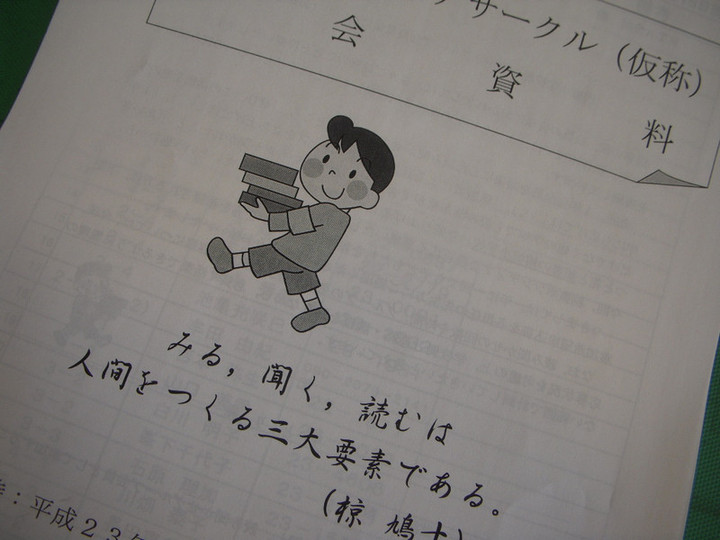 サークル（仮称）
会資料
みる，聞く，読むは
人間をつくる三大要素である。
（椋 鳩十）
：平成２３年